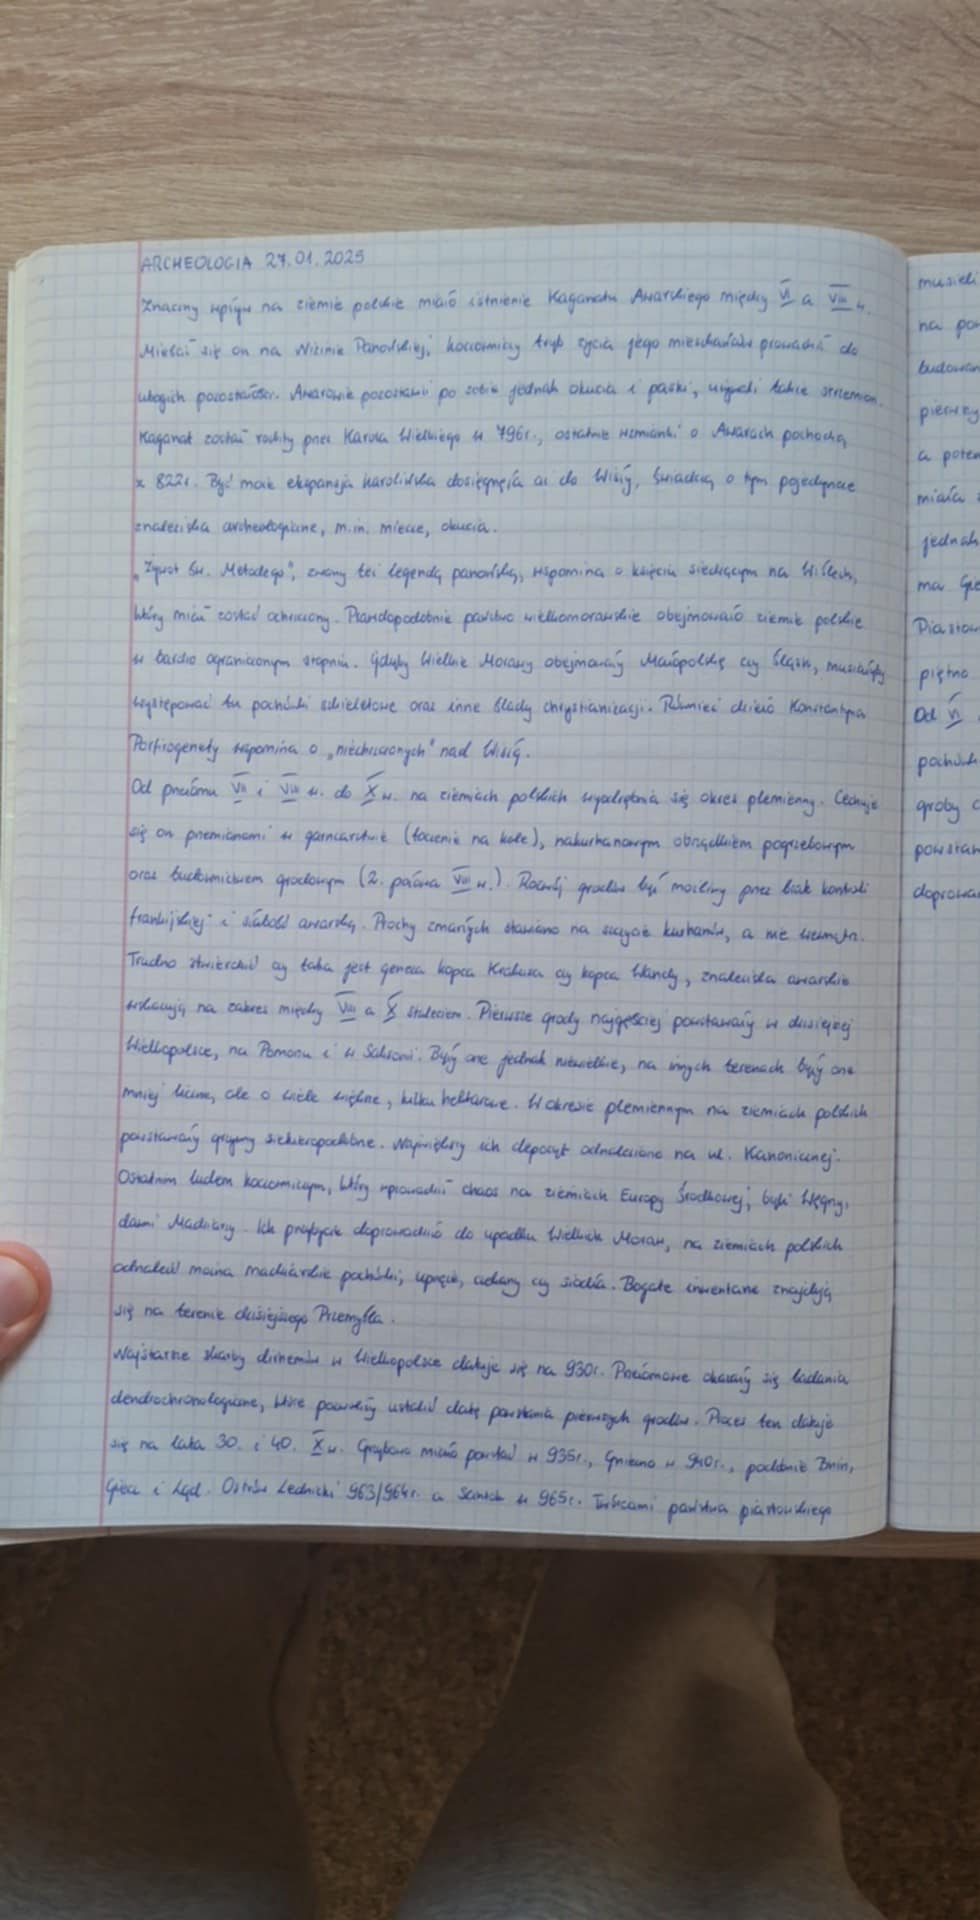 ARCHEOLOGIA 27.01.2025
Znaczny wpływ na ziemie polskie miało istnienie Kaganatu Awarskiego między VI a VIII w.
Mieścił się on na Nizinie Panońskiej, koczowniczy tryb życia jego mieszkańców prowadził do
ubogich pozostałości. Awarowie pozostawili po sobie jednak okucia i paski, używali także strzemion.
Kaganat został rozbity przez Karola Wielkiego w 796r., ostatnie wzmianki o Awarach pochodzą
z 822r. Być może ekspansja karolińska dosięgnęła aż do Wisły, świadczą o tym pojedyncze
znaleziska archeologiczne, m.in. miecze, okucia.
"Żywot św. Metodego", zwany też legendą panońską, wspomina o księciu siedzącym na Wiślech,
który miał zostać ochrzczony. Prawdopodobnie państwo wielkomorawskie obejmowało ziemie polskie
w bardzo ograniczonym stopniu. Gdyby Wielkie Morawy obejmowały Małopolskę czy Śląsk, musiałyby
występować tu pochówki szkieletowe oraz inne ślady chrystianizacji. Również dzieło Konstantyna
Porfirogenety wspomina o "niechrzczonych" nad Wisłą.
Od przełomu VII i VIII w. do X w. na ziemiach polskich wyodrębnia się okres plemienny. Cechuje
się on przemianami w garncarstwie (toczenie na kole), nakurhanowym obrządkiem pogrzebowym
oraz budownictwem grodowym (2. połowa VIII w.). Rozwój grodów był możliwy przez brak kontroli
frankijskiej i słabość awarską. Prochy zmarłych stawiano na szczycie kurhanów, a nie wewnątrz.
Trudno stwierdzić czy taka jest geneza kopca Krakusa czy kopca Wandy, znaleziska awarskie
wskazują na zakres między VIII a X stuleciem. Pierwsze grody najgęściej powstawały w dzisiejszej
Wielkopolsce, na Pomorzu i w Saksonii. Były one jednak niewielkie, na innych terenach były one
mniej liczne, ale o wiele większe, kilku hektarowe. W okresie plemiennym na ziemiach polskich
powstawały grzywny siekieropodobne. Największy ich depozyt odnaleziono na ul. Kanoniczej.
Ostatnim ludem koczowniczym, który wprowadził chaos na ziemiach Europy Środkowej, byli Węgrzy,
dawni Madziarzy. Ich przybycie doprowadziło do upadku Wielkich Moraw, na ziemiach polskich
odnaleźć można madziarskie pochówki, uprzęże, czekany czy siodła. Bogate inwentarze znajdują
się na terenie dzisiejszego Przemyśla.
Najstarsze skarby dirhemów w Wielkopolsce datuje się na 930r. Przełomowe okazały się badania
dendrochronologiczne, które pozwoliły ustalić datę powstania pierwszych grodów. Proces ten datuje
się na lata 30. i 40. X w. Grzybowo miało powstać w 935r., Gniezno w 940r., podobnie Bnin,
Giecz i Ląd. Ostrów Lednicki 963/964r. a Santok w 965r. Twórcami państwa piastowskiego
musieli
na
budowan
pierwszy
a poten
miała
jednak
ma
Piastow
piętno
Od VI
pochów
groby
powstan
doprowa